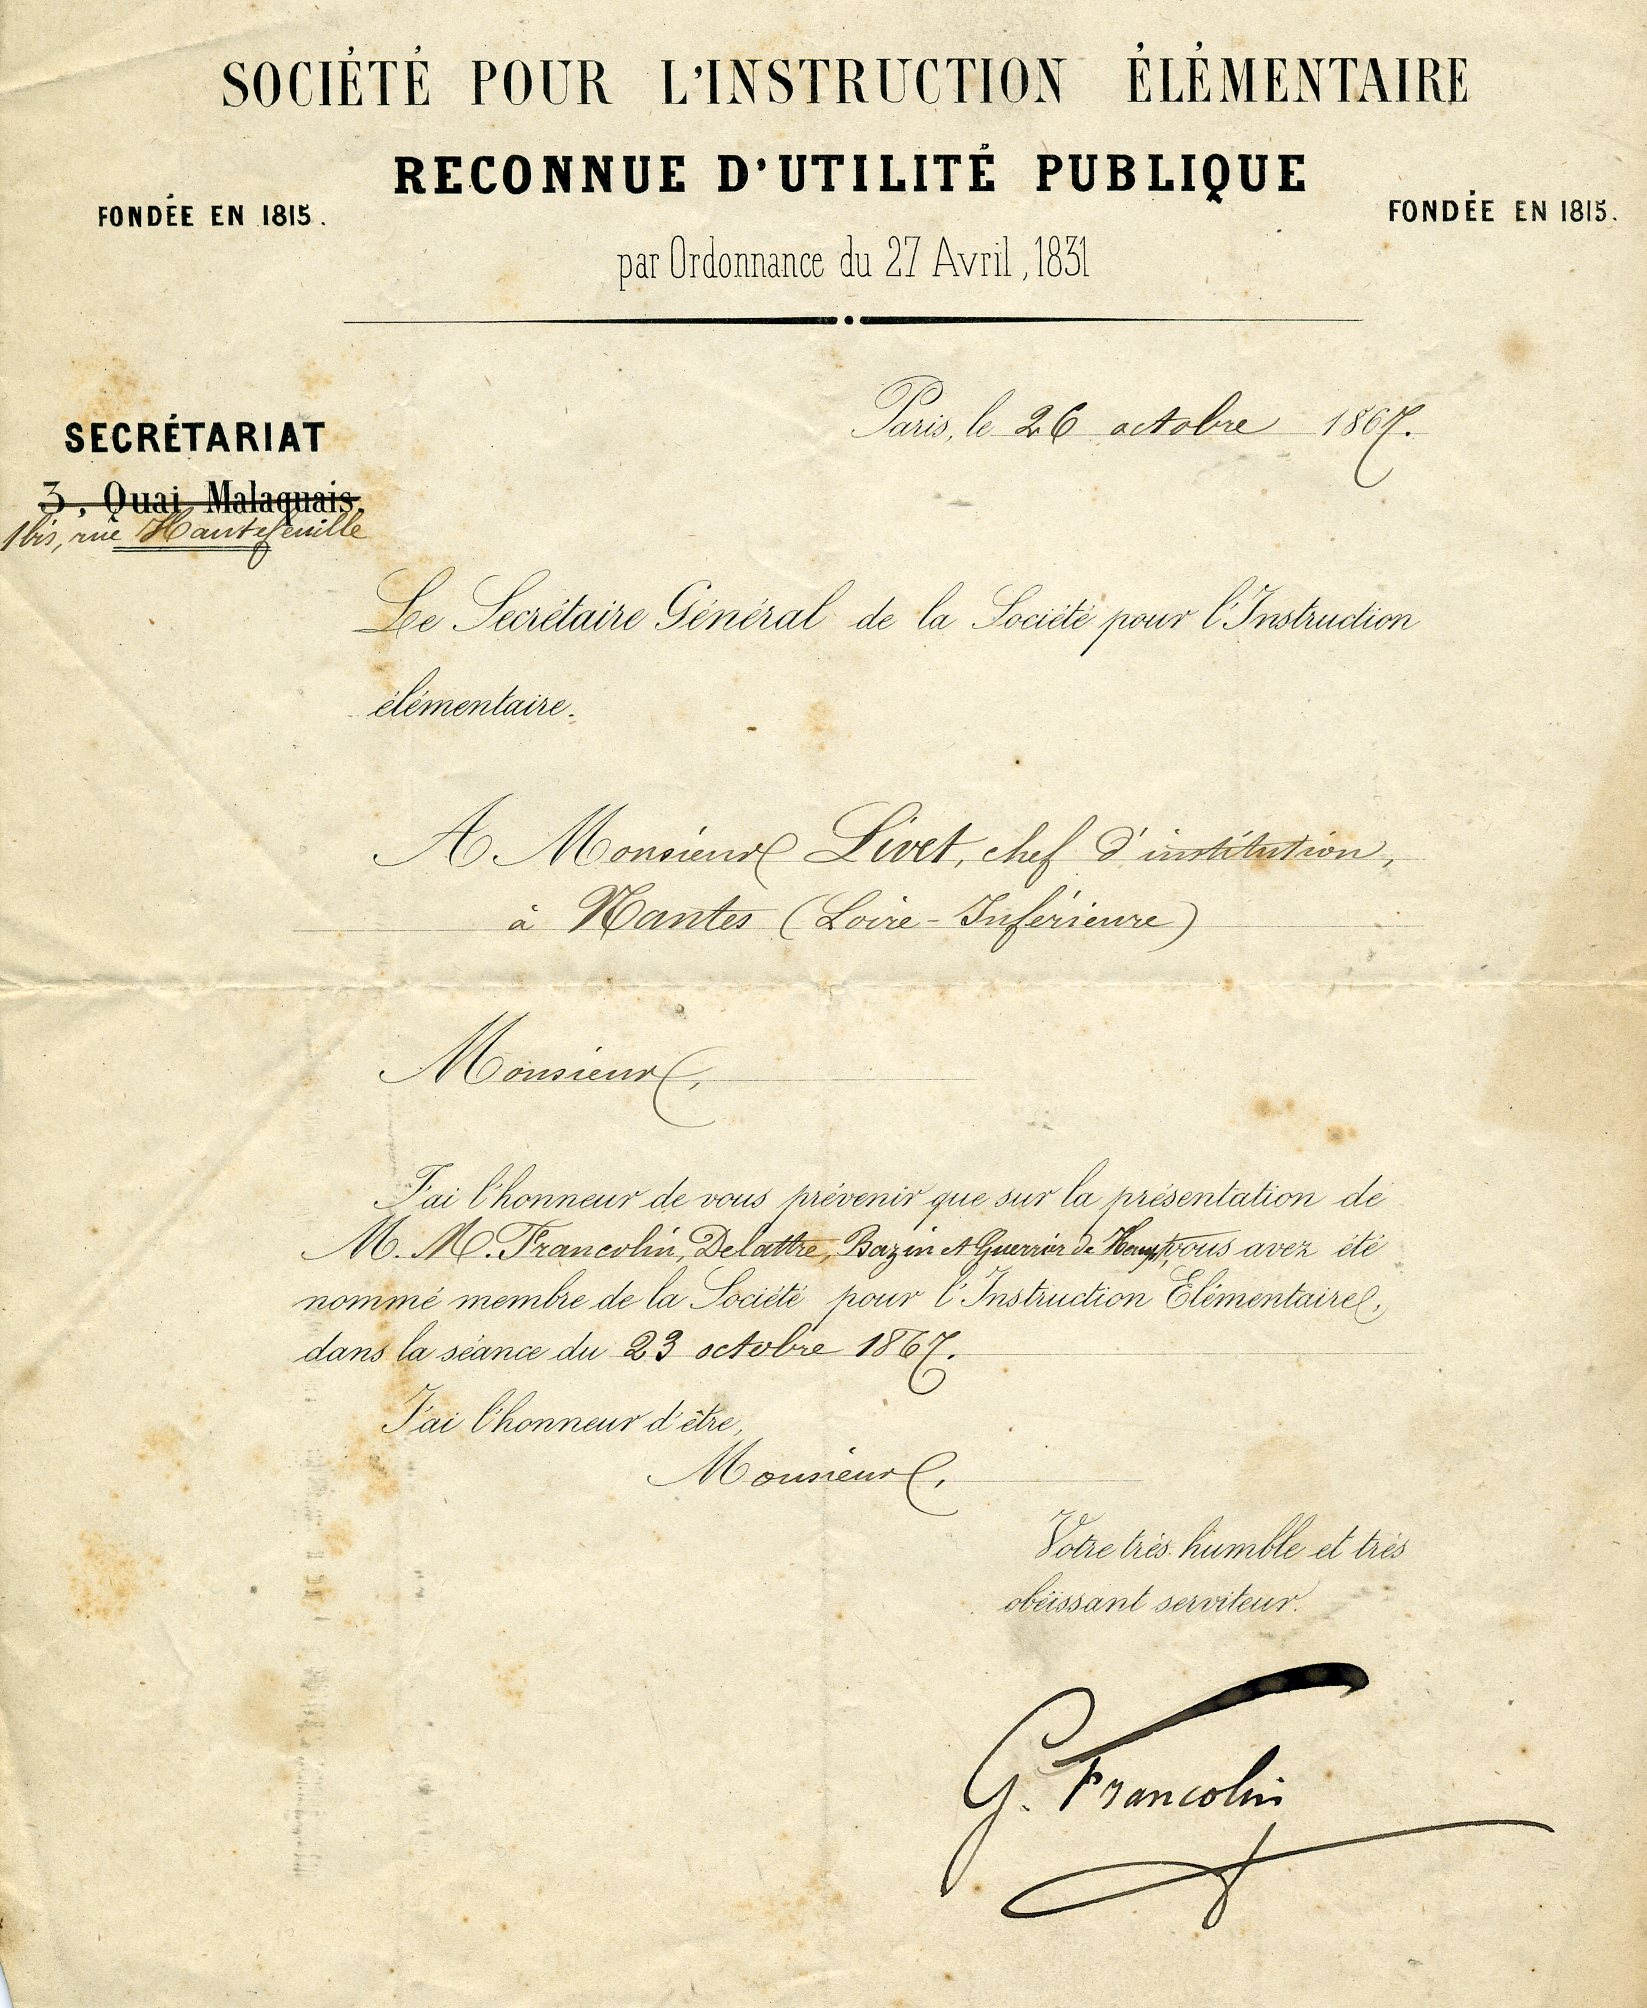 SOCIÉTÉ POUR L'INSTRUCTION ÉLÉMENTAIRE
RECONNUE D'UTILITÉ PUBLIQUE
FONDÉE EN 1815.
FONDÉE EN 1815.
par Ordonnance du 27 Avril, 1831
Paris, le 26 octobre 1867.
SECRÉTARIAT
3, Quai Malaquais.
1 bis, rue Hautefeuille
Le Secrétaire Général de la Société pour l'Instruction
élémentaire.
A Monsieur Livet, chef d'institution,
à Nantes (Loire-Inférieure)
Monsieur,
J'ai l'honneur de vous prévenir que sur la présentation de
M. M. Francolin, Delattre, Bazin et Guerrier de vous avez été
nommé membre de la Société pour l'Instruction Elémentaire,
dans la séance du 23 octobre 1867.
J'ai l'honneur d'être,
Monsieur,
Votre trés humble et trés
obéissant serviteur.
G. Francolin